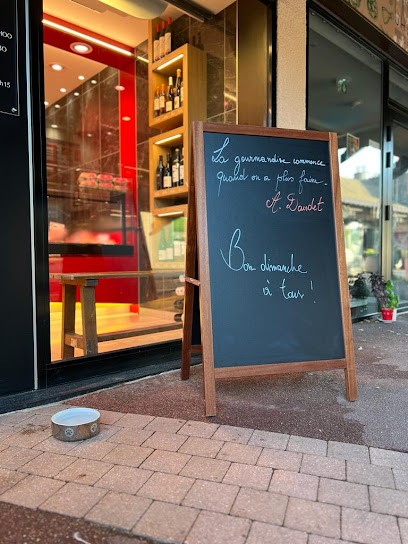 La gourmandise commence
quand on a plus faim.
A. Daudet
Bon dimanche
à tous !
h15